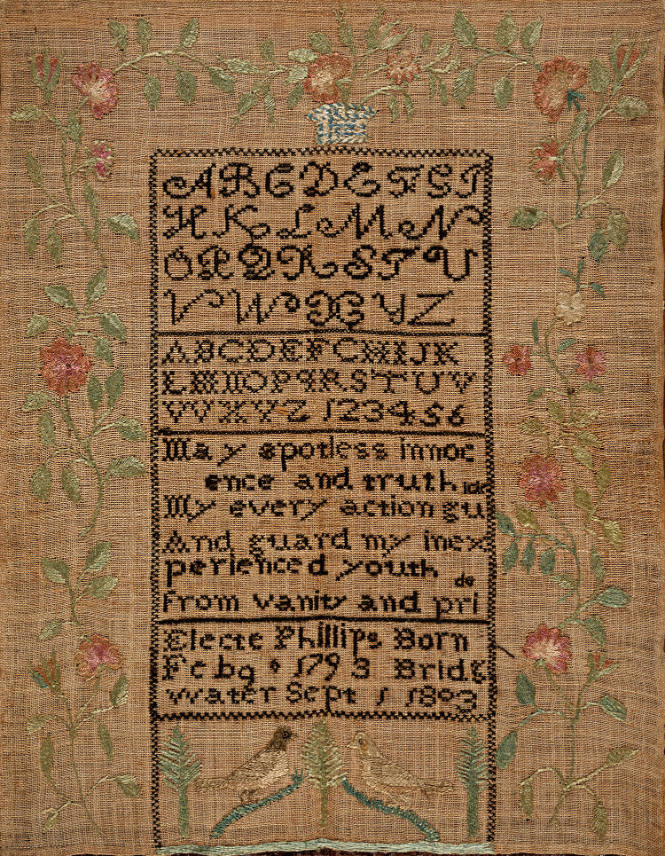 A B C D E F G I
H K L M N
O P Q R S T U
V W X Y Z
A B C D E F G H I J K
L M N O P Q R S T U V
W X Y Z 1 2 3 4 5 6
May spotless innoc
ence and truth
My every action gu
ide
And guard my inex
perienced youth
From vanity and pri
de
Electe Phillips Born
Feb 9 1793 Bridg
water Sept 1 1803